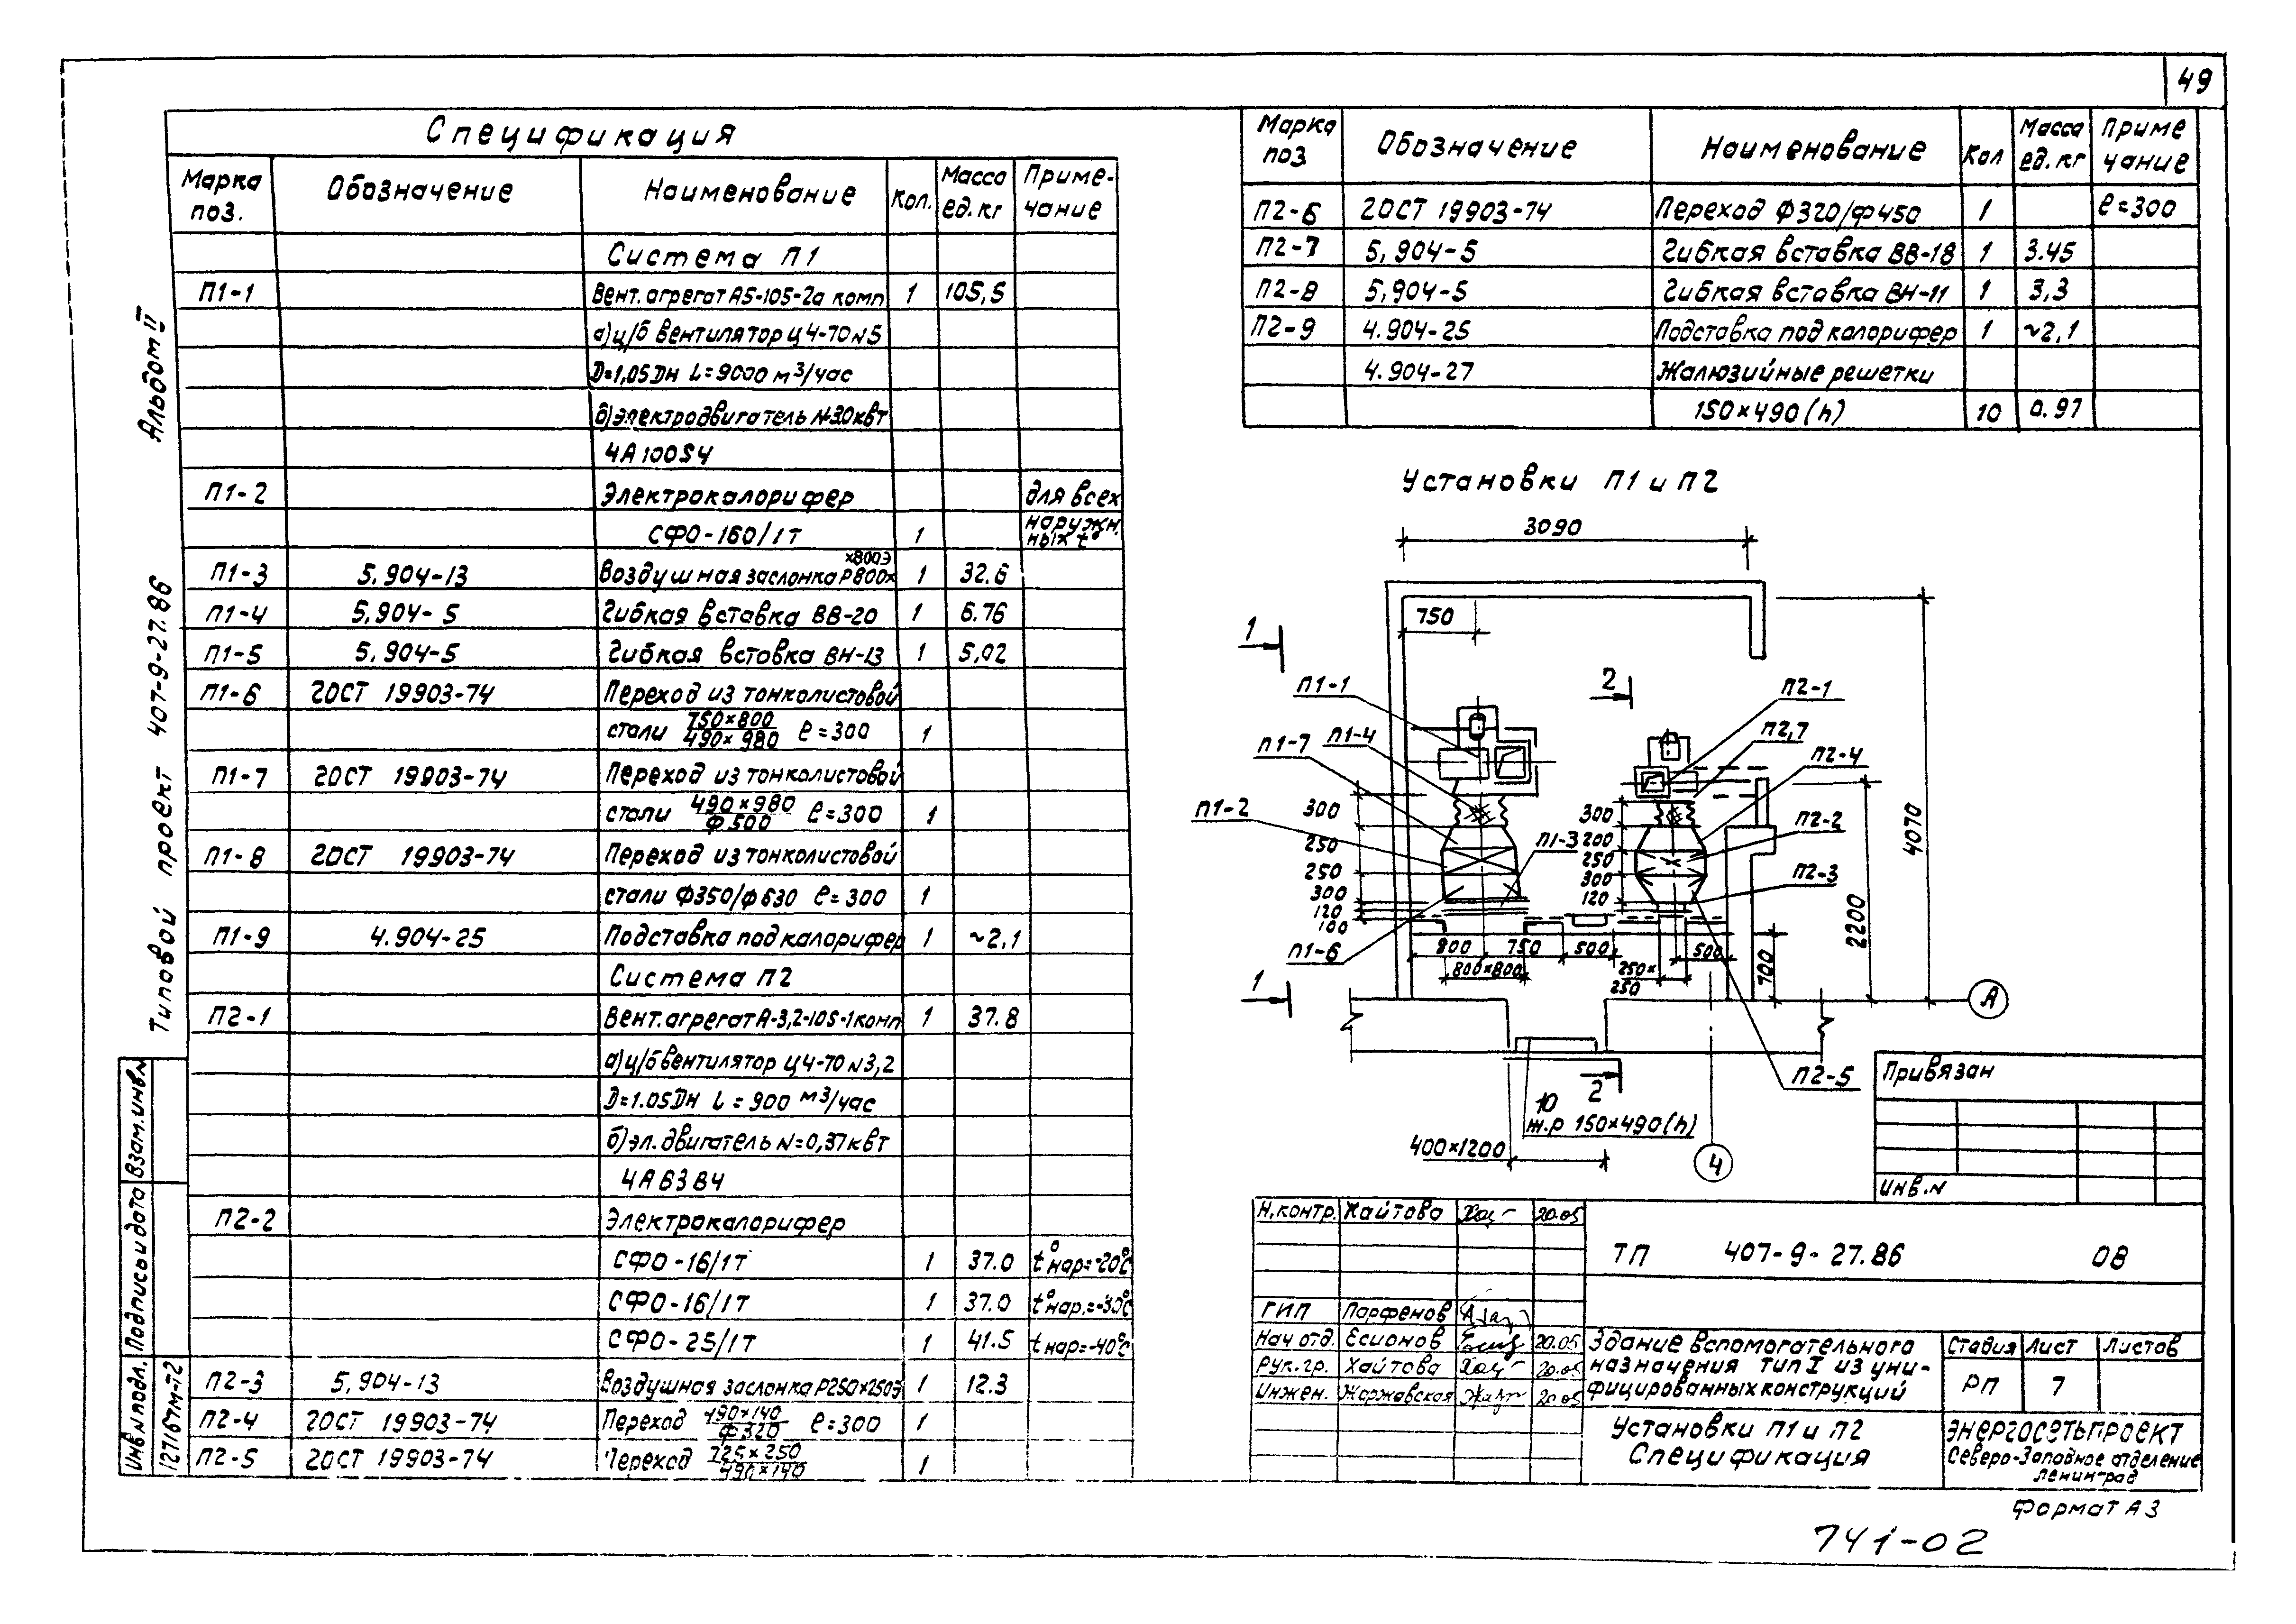 49
Спецификация
Марка поз. Обозначение Наименование Кол. Масса ед. кг Приме-чание
Система П1
П1-1 Вент. агрегат А5-105-2а комп 1 105,5
а) ц/б вентилятор Ц4-70 N5
D=1,05Dн L=9000 м³/час
б) электродвигатель N=3.0 квт
4А100S4
П1-2 Электрокалорифер для всех
СФО-160/1т 1 наружн. ных t°
П1-3 5,904-13 Воздушная заслонка Р800× ×800Э 1 32.6
П1-4 5,904-5 Гибкая вставка ВВ-20 1 6.76
П1-5 5,904-5 Гибкая вставка ВН-13 1 5,02
П1-6 ГОСТ 19903-74 Переход из тонколистовой
стали 750×800/490×980 ℓ=300 1
П1-7 ГОСТ 19903-74 Переход из тонколистовой
стали 490×980/Ф500 ℓ=300 1
П1-8 ГОСТ 19903-74 Переход из тонколистовой
стали Ф350/Ф630 ℓ=300 1
П1-9 4.904-25 Подставка под калорифер 1 ~2,1
Система П2
П2-1 Вент. агрегат А-3,2-105-1 комп 1 37.8
а) ц/б вентилятор Ц4-70 N3,2
D=1.05Dн L=900 м³/час
б) эл. двигатель N=0,37 квт
4АВ3В4
П2-2 Электрокалорифер
СФО-16/1т 1 37.0 t°нар=-20°С
СФО-16/1т 1 37.0 t°нар.=-30°С
СФО-25/1т 1 41.5 tнар=-40°С
П2-3 5,904-13 Воздушная заслонка Р250×250Э 1 12.3
П2-4 ГОСТ 19903-74 Переход 490×140/Ф320 ℓ=300 1
П2-5 ГОСТ 19903-74 Переход 250/490×140 1
Марка поз Обозначение Наименование Кол Масса ед. кг Приме чание
П2-6 ГОСТ 19903-74 Переход Ф320/Ф450 1 ℓ=300
П2-7 5,904-5 Гибкая вставка ВВ-18 1 3.45
П2-8 5,904-5 Гибкая вставка ВН-11 1 3,3
П2-9 4.904-25 Подставка под калорифер 1 ~2,1
4.904-27 Жалюзийные решетки
150×490(h) 10 0.97
Установки П1 и П2
3090
750
1
2
П1-1
П2-1
П1-7 П1-4
П2,7
П2-4
П1-2
300
300
П2-2
250
П1-3
200
250
250
П2-3
300
300
120
120
100
4070
2200
П1-6
800 750 500 500
800×800
250×250
700
1
А
П2-5
2
10
ж.р 150×490(h)
400×1200
4
Привязан
Инв.N
Н.контр. Хайтова 20.05
ТП 407-9-27.86 08
ГИП Парфенов
Нач отд. Есионов 20.05
Рук.гр. Хайтова 20.05
Инжен. Жаржавская 20.05
Здание вспомогательного
назначения тип I из уни-
фицированных конструкций
Стадия Лист Листов
РП 7
Установки П1 и П2
Спецификация
ЭНЕРГОСЕТЬПРОЕКТ
Северо-Западное отделение
Ленинград
Формат А3
741-02
Альбом II
Типовой проект 407-9-27.86
Взам.инв.N
Подпись и дата
Инв.N подл.
12767тм-т2